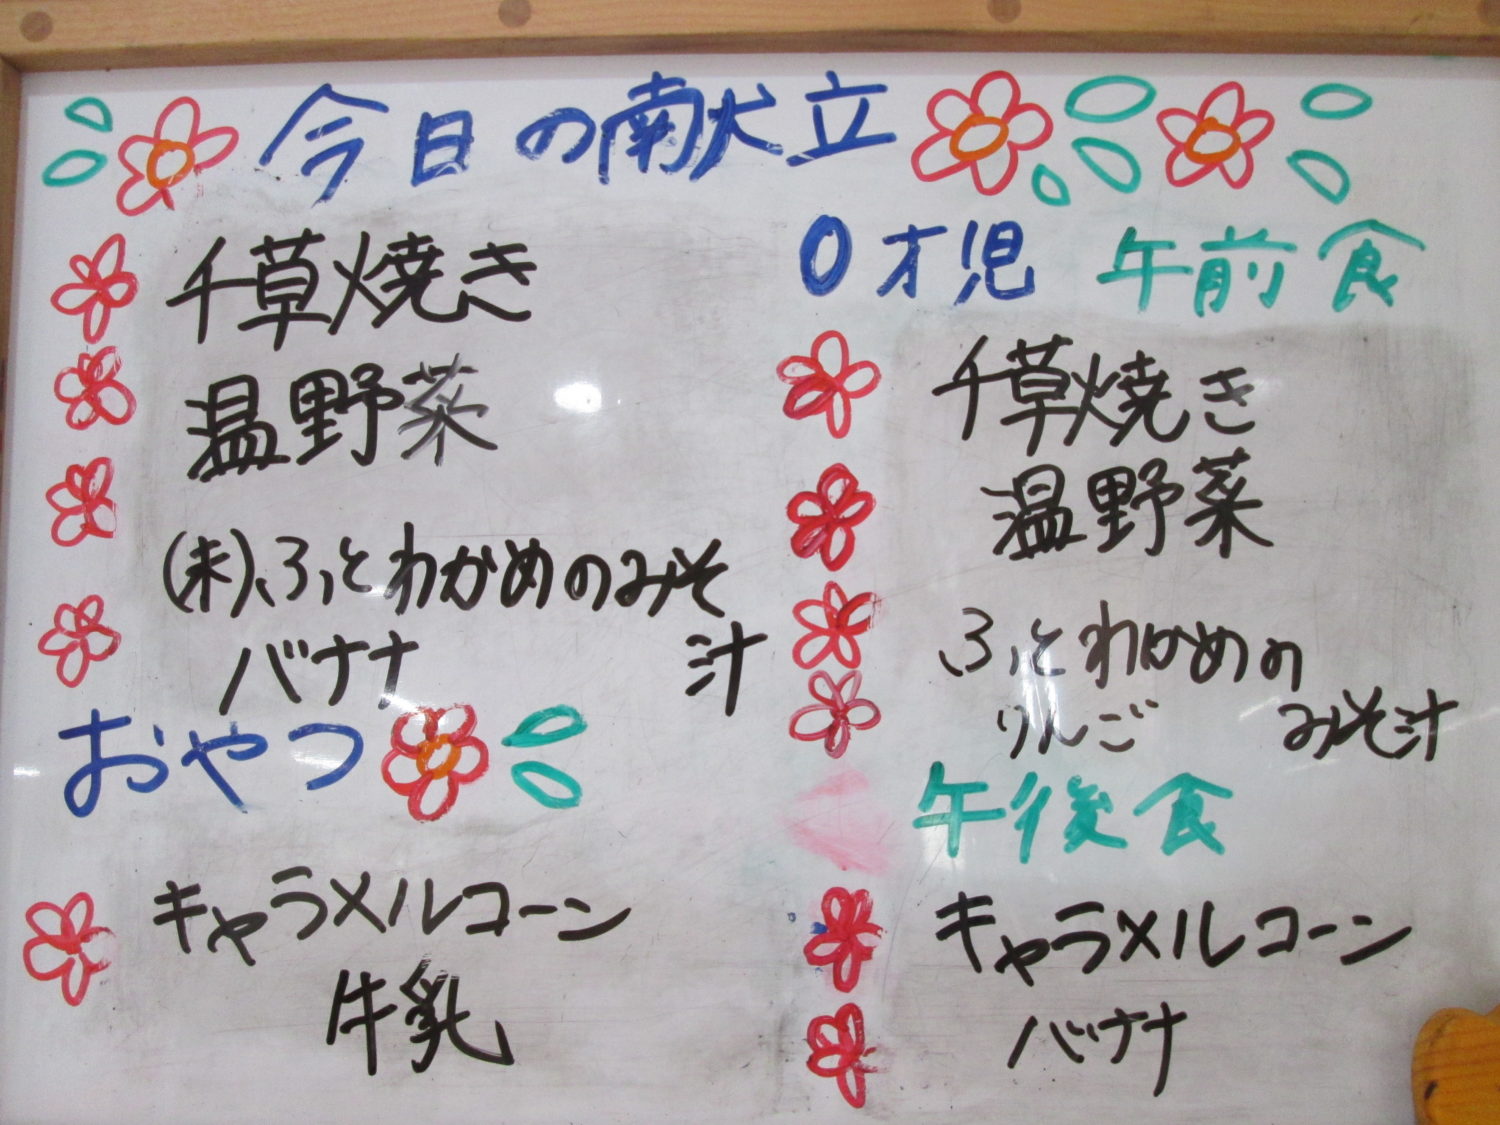 今日の献立
千草焼き
温野菜
(米)、ふとわかめのみそ
汁
バナナ
おやつ
キャラメルコーン
牛乳
0才児 午前食
千草焼き
温野菜
ふとわかめの
みそ汁
りんご
午後食
キャラメルコーン
バナナ